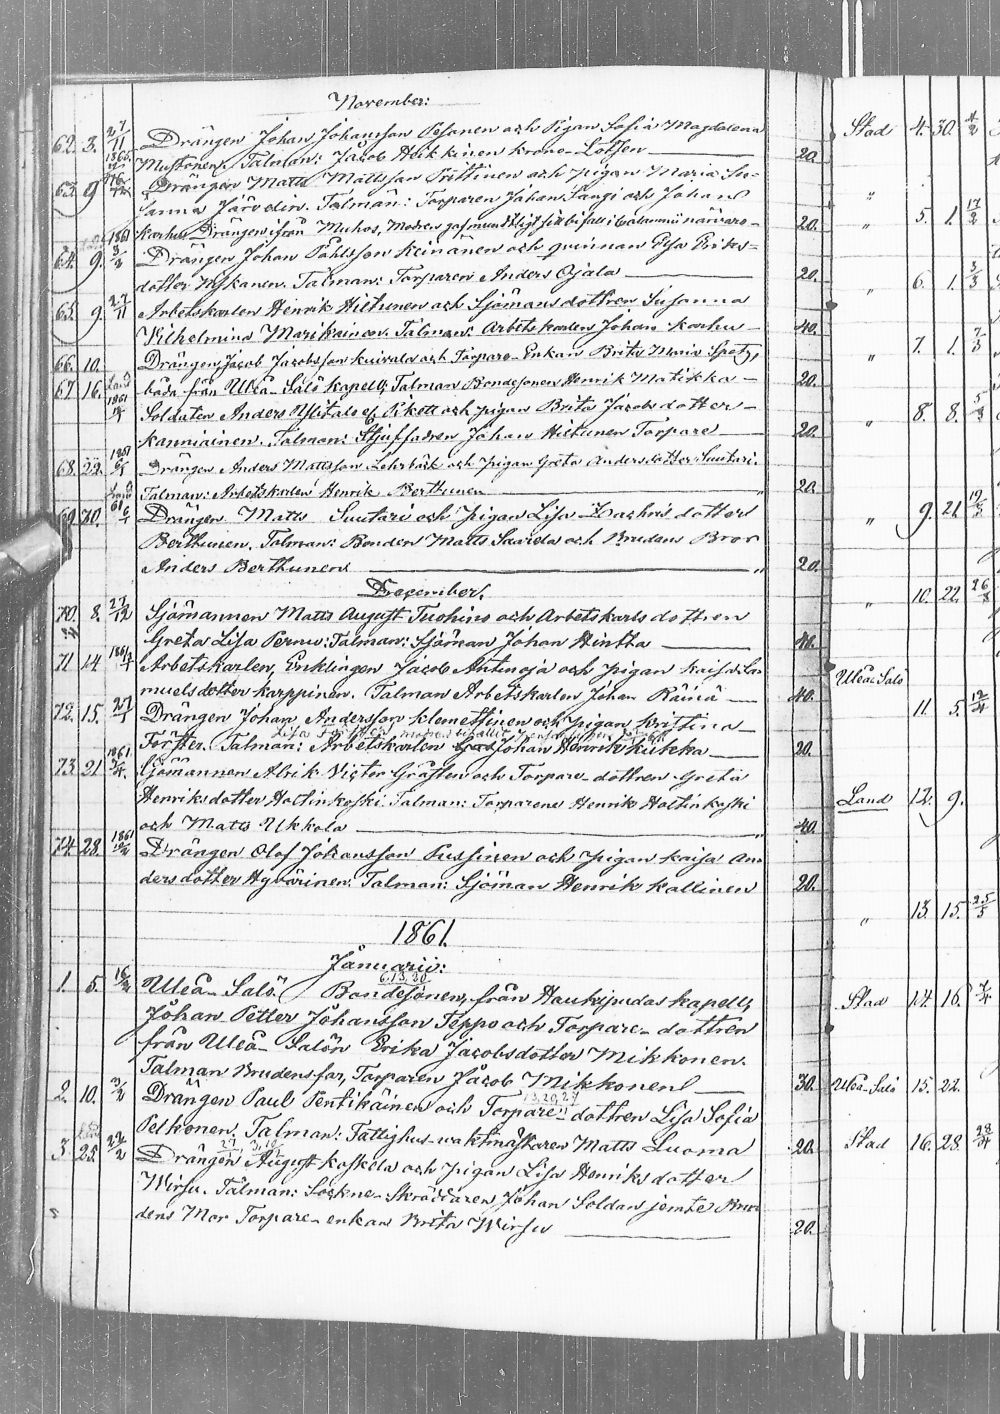 November:
62. 3. 27/11 Drängen Johan Johansson Pesonen och Pigan Sofia Magdalena
Mustonen. Talman: Jacob Heikkinen Krono-Lotsen 20.
63. 9 Drängen Matts Mattsson Pittinen och pigan Maria Su-
sanna Järvelin. Talman: Torparen Johan Sangi och Johan
Karhu Drängen ifrån Muhos, Modren gaf muntligt sitt bifall i närvaro 20.
64. 9. 1861 3/2 Drängen Johan Påhlsson Keinänen och qvinnan Lisa Eriks-
dotter Nykänen. Talman: Torparen Anders Ojala 20.
65. 9. 27/11 Arbetskarlen Henrik Hiltunen och Sjömansdottren Susanna
Vilhelmina Marikainen. Talman: Arbetskarlen Johan Karhu 40.
66. 10. Drängen Jacob Jacobsson Kuivala och Torpare-Enkan Brita Maria Spets,
båda från Uleå-Salo kapell, Talman Bondesonen Henrik Matikka 20.
67. 16. Land 1861 Soldaten Anders Ylitalo ef. Pikett och pigan Brita Jacobsdotter
Kanniainen. Talman: Stjuffadren Johan Hiltunen Torpare 20.
68. 22. 1861 Drängen Anders Mattsson Lehrbäck och pigan Greta Andersdotter Suutari.
Talman: Arbetskarlen Henrik Berthunen 20.
69. 30. Land Drängen Matts Suutari och pigan Lisa Zachrisdotter
Berthunen. Talman: Bonden Matts Saarela och Brudens Bror
Anders Berthunen 20.
December.
70. 8. 27/12 Sjömannen Matts August Tuohino och Arbetskarlsdottren
Greta Lisa Pernu: Talman: Sjöman Johan Hintha 40.
71 14 1861 Arbetskarlen, Enklingen Jacob Antinoja och pigan Kaisa Sa-
muelsdotter Karppinen. Talman Arbetskarlen Johan Räinä 40.
72. 15. 27/1 Drängen Johan Andersson Klemettinen och pigan Kristina
Förster. Talman: Arbetskarlen Johan Henrik Kukka 20.
73. 21 1861 Sjömannen Alrik Victor Grästen och Torpare-dottren Greta
Henriksdotter Holtinkoski Talman: Torparene Henrik Holtinkoski
och Matts Ukkola 40.
74. 28. 1861 Drängen Olof Johansson Pussinen och pigan Kaisa An-
dersdotter Hyvärinen. Talman: Sjöman Henrik Kallinen 20.
1861.
Januarii:
6.13.20.
1. 5. 16/2 Uleå-Salo. Bondesonen, från Haukipudas kapell,
Johan Petter Johansson Teppo och Torpare-dottren
från Uleå-Salon Erika Jacobsdotter Mikkonen.
Talman Brudens far, Torparen Jacob Mikkonen 30.
13.20.27
2. 10. 3/2 Drängen Paul Pentikäinen och Torpare-dottren Lisa Sofia
Pelkonen. Talman: Fattighus-waktmästaren Matts Luoma 20.
3. 25. 22/2 Drängen August Koskela och pigan Lisa Henriksdotter
Wirsu. Talman: Sockne-Skräddaren Johan Soldan jemte Bru-
dens Mor Torpare-enkan Brita Wirsu 20.
Stad 4. 30. 4/2
" 5. 1. 17/2
" 6. 1. 3/3
" 7. 1. 7/3
" 8. 8.
" 9. 21.
" 10. 22.
Uleå-Salo
11. 5.
Land 12. 9.
" 13. 15. 25/5
Stad 14. 16. 7/4
Uleå-Salo 15. 22.
Stad 16. 28. 28/4